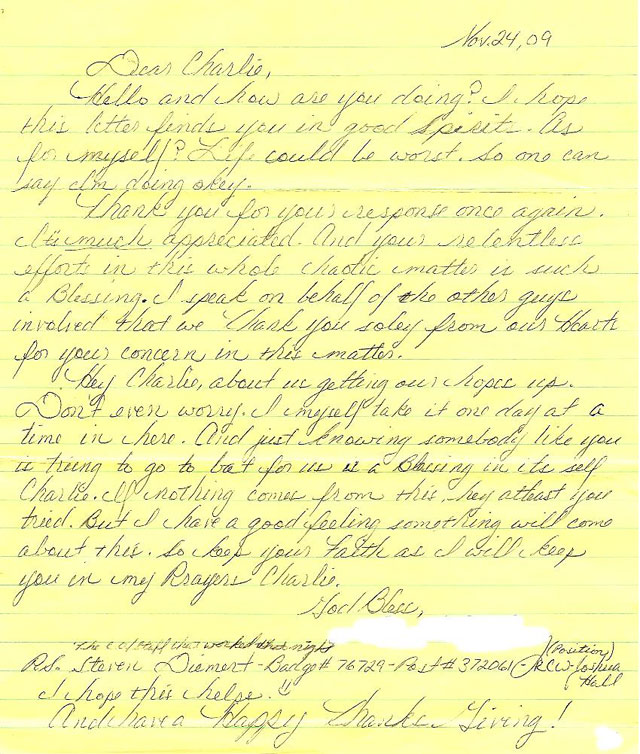 Nov. 24, 09
Dear Charlie,
Hello and how are you doing? I hope
this letter finds you in good Spirits. As
for myself? Life could be worst. So one can
say I'm doing okey.
Thank you for your response once again.
It's much appreciated. And your relentless
efforts in this whole chaotic matter is such
a Blessing. I speak on behalf of the other guys
involved that we Thank you soley from our Heart
for your concern in this matter.
Hey Charlie, about us getting our hopes up.
Don't even worry. I myself take it one day at a
time in here. And just knowing somebody like you
is trying to go to bat for us is a Blessing in its self
Charlie. If nothing comes from this, hey atleast you
tried. But I have a good feeling something will come
about this. So keep your Faith as I will keep
you in my Prayers Charlie.
God Bless,
The C.O staff that worked that night
P.S. Steven Diemert - Badge# 76729 - Post# 372061 - RCW - Joshua Hall
(Position)
I hope this helps.
And have a Happy Thanks Giving!